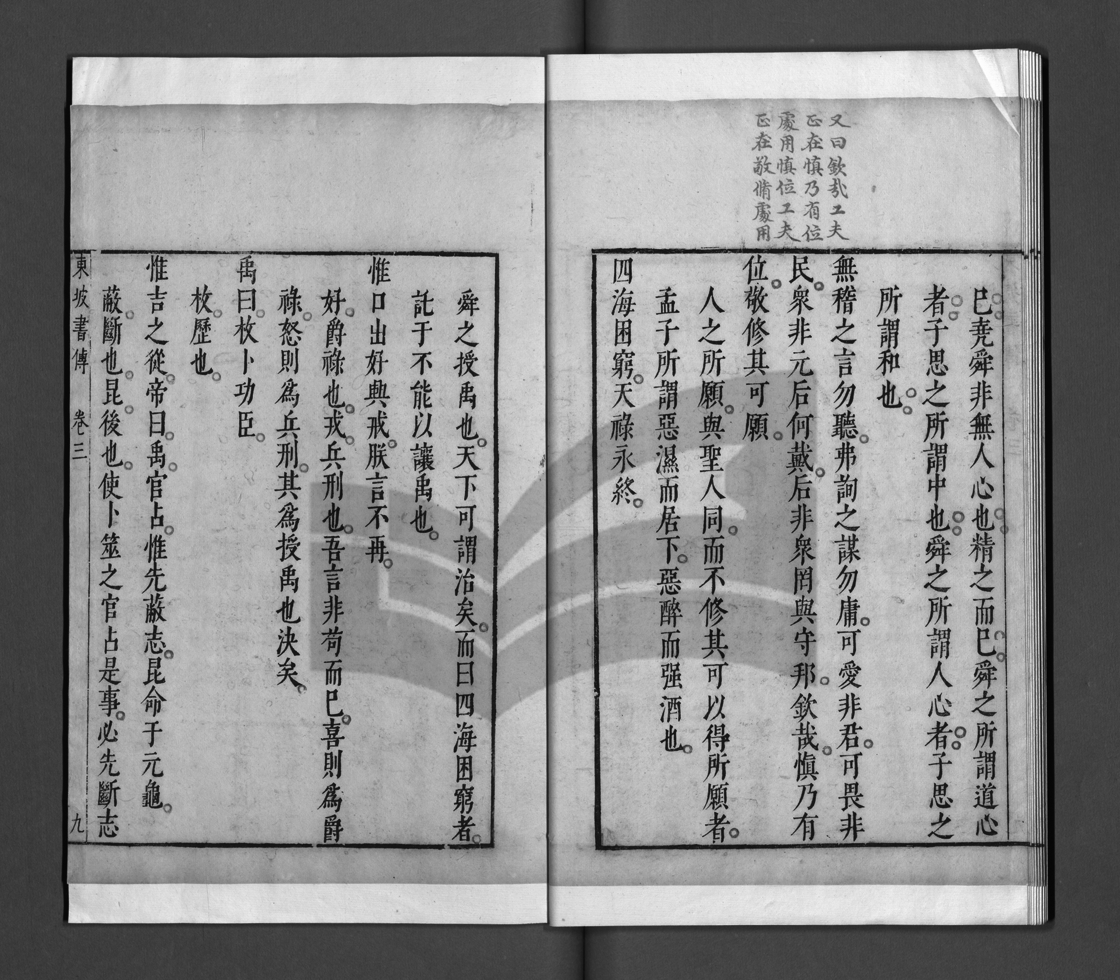 又曰欽哉工夫
正在慎乃有位
處用慎位工夫
正在敬脩處用
已堯舜非無人心也精之而已舜之所謂道心
者子思之所謂中也舜之所謂人心者子思之
所謂和也
無稽之言勿聽弗詢之謀勿庸可愛非君可畏非
民眾非元后何戴后非眾罔與守邦欽哉慎乃有
位敬修其可願
人之所願與聖人同而不修其可以得所願者
孟子所謂惡濕而居下惡醉而强酒也
四海困窮天祿永終
舜之授禹也天下可謂治矣而曰四海困窮者
託于不能以讓禹也
惟口出好興戎朕言不再
好爵祿也戎兵刑也吾言非苟而已喜則為爵
祿怒則為兵刑其為授禹也決矣
禹曰枚卜功臣
枚歷也
惟吉之從帝曰禹官占惟先蔽志昆命于元龜
蔽斷也昆後也使卜筮之官占是事必先斷志
東坡書傳 卷三 九